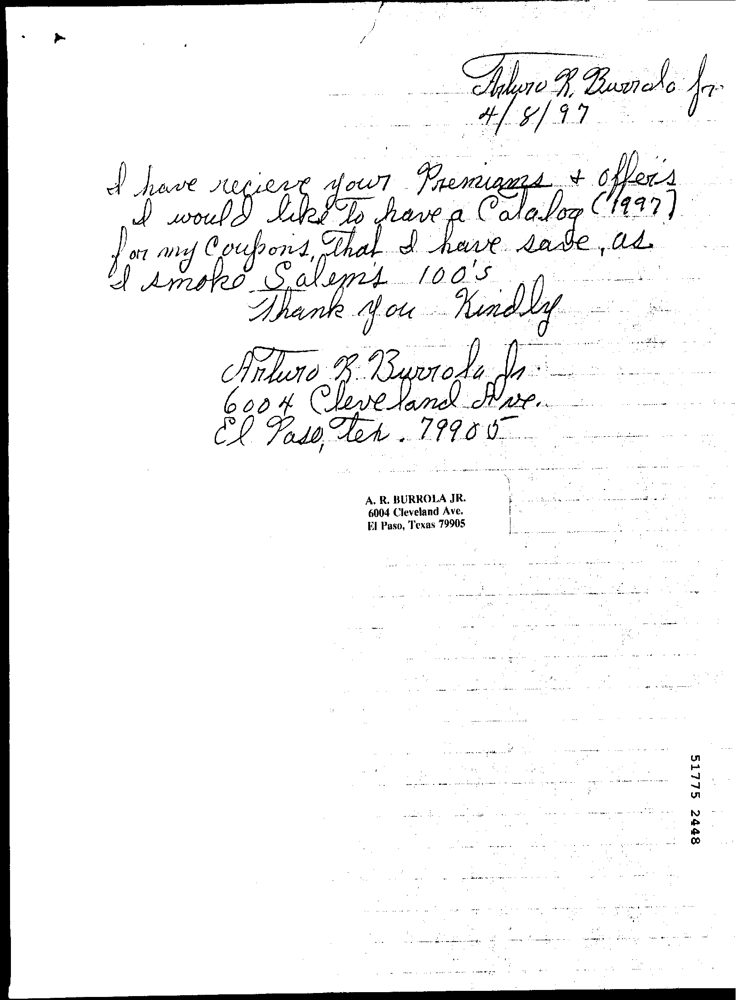 Arturo R. Burrola Jr.
4/8/97
I have recieve your Premiums + offers
I would like to have a Catalog (1997)
for my Coupons, That I have save, as
I smoke Salems 100's
Thank you Kindly
Arturo R. Burrola Jr.
6004 Cleveland Ave.
El Paso, Tex. 79905
A. R. BURROLA JR.
6004 Cleveland Ave.
El Paso, Texas 79905
51775 2448